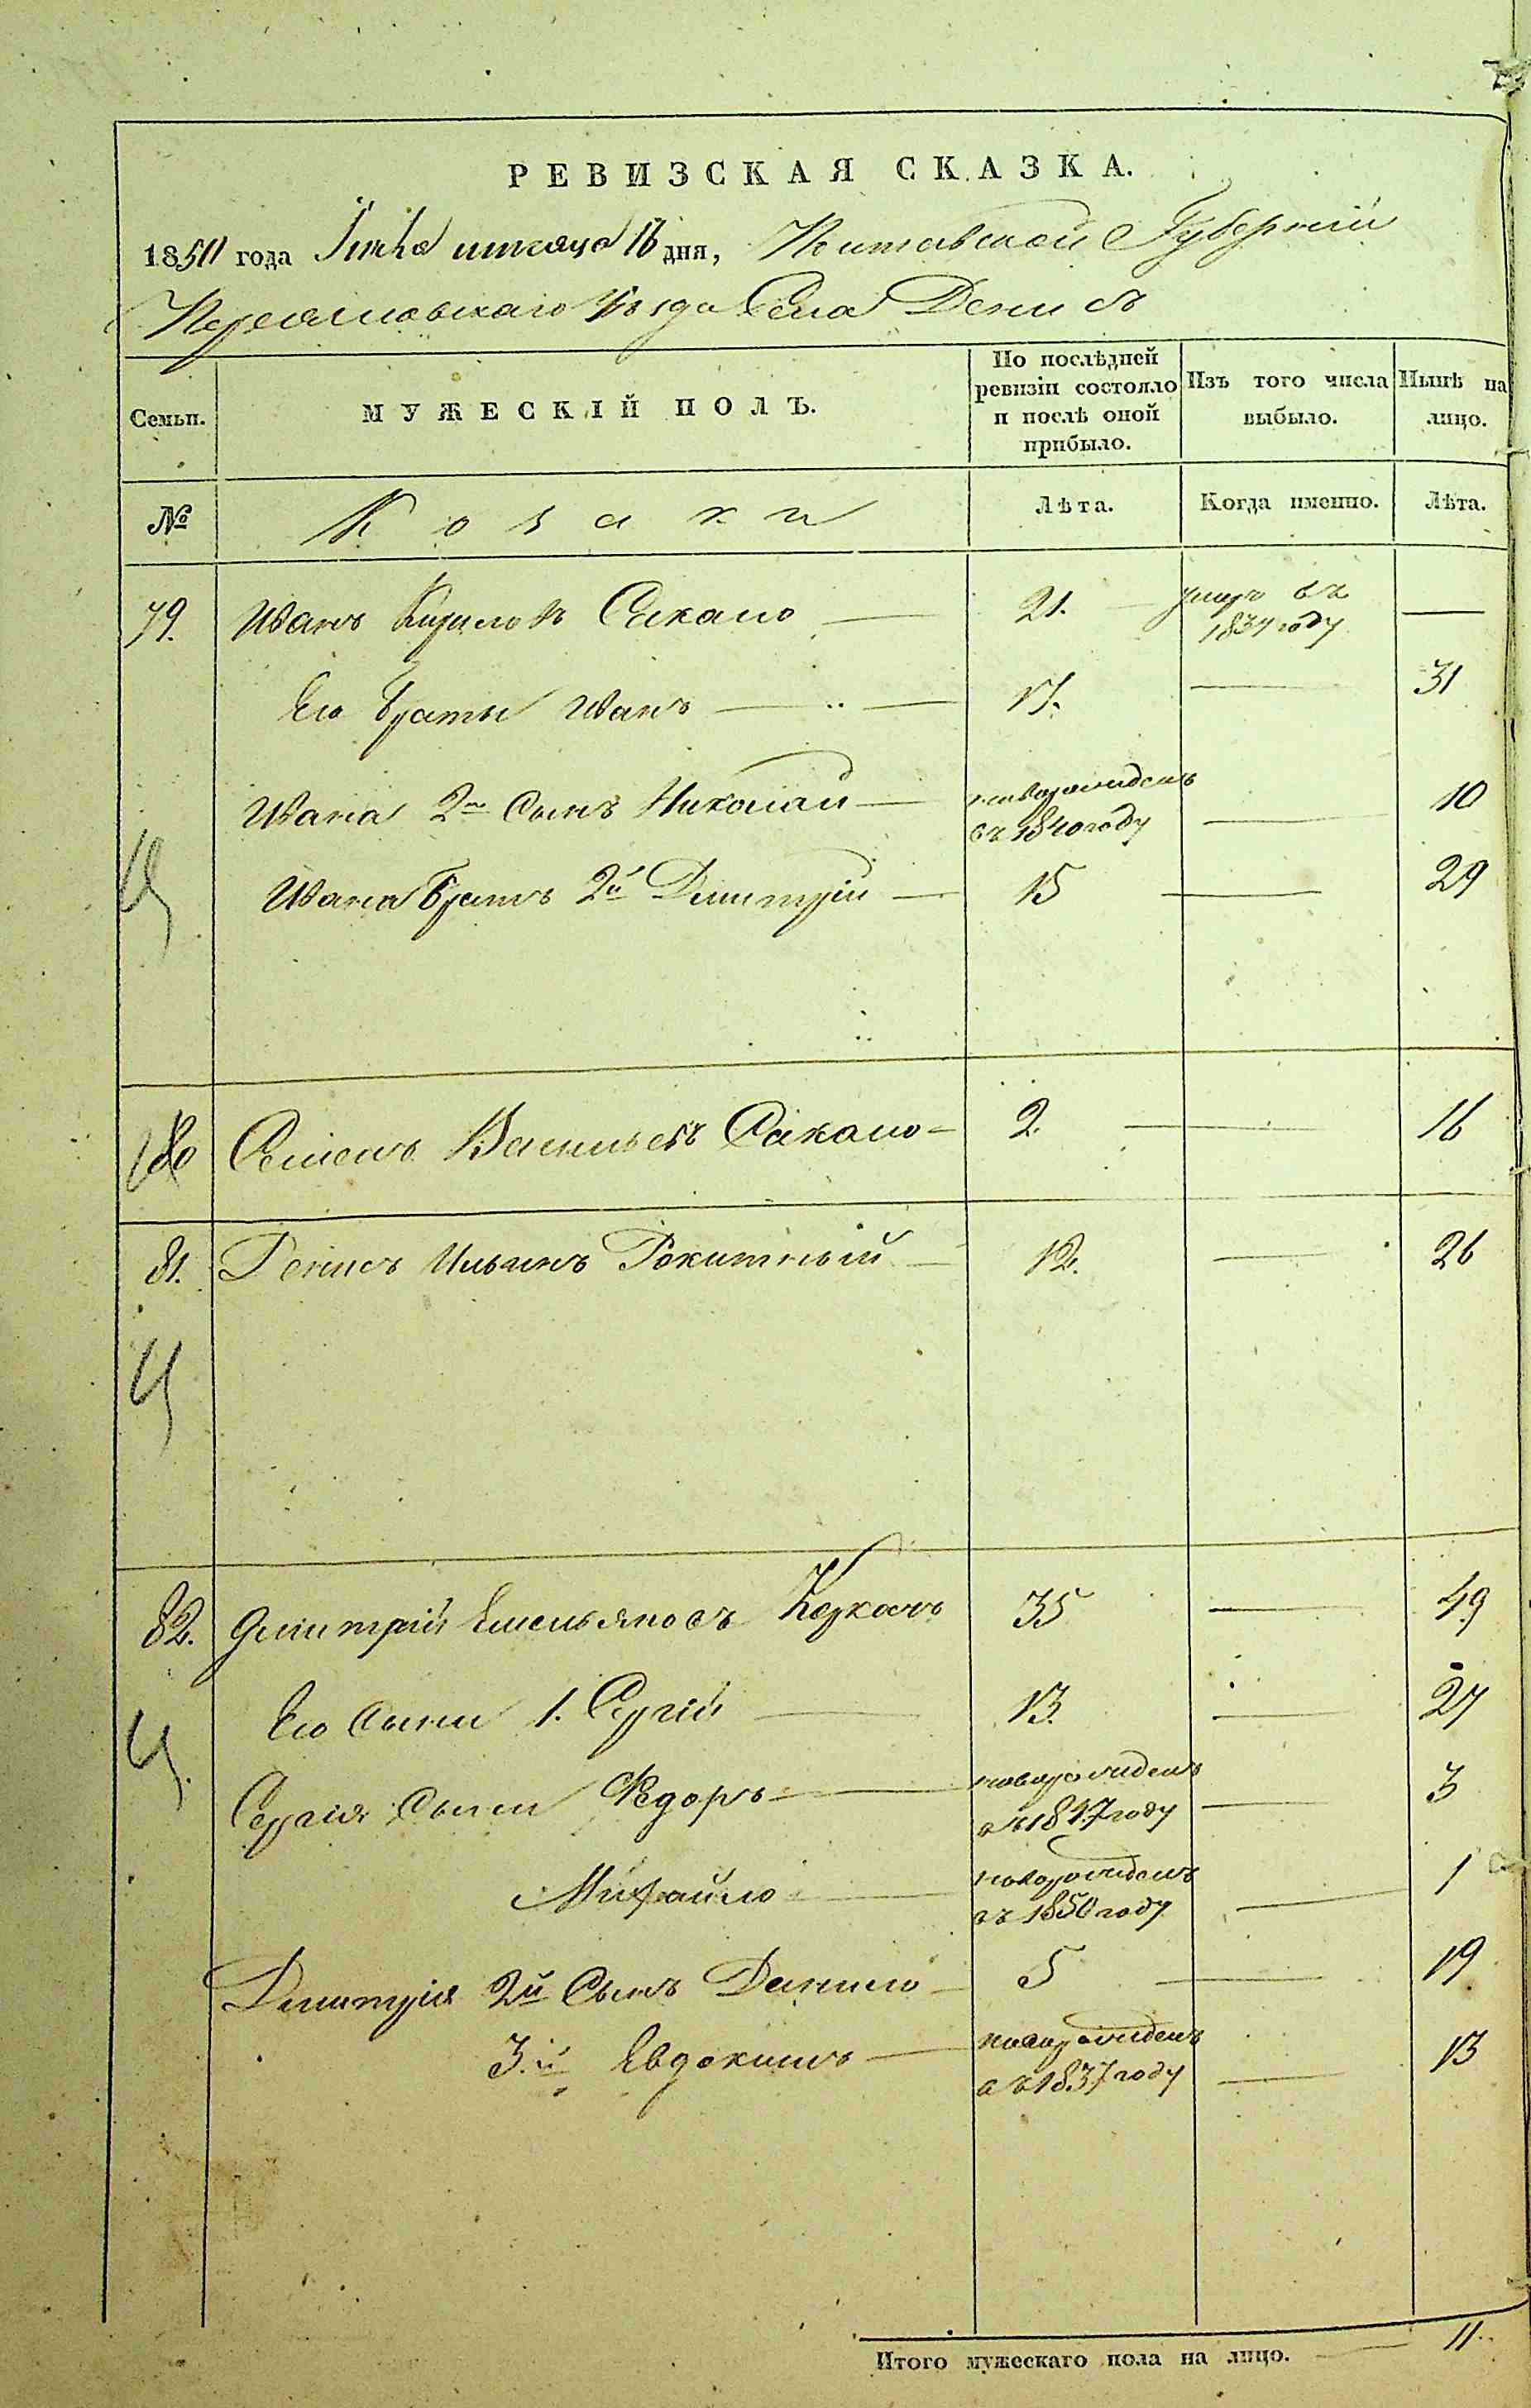 РЕВИЗСКАЯ СКАЗКА.
1850 года Іюля месяца 18 дня, Полтавской Губерніи
Переяславскаго Уезда Села Денис
Семьи.
МУЖЕСКІЙ ПОЛЪ.
По послѣдней ревизіи состояло и послѣ оной прибыло.
Изъ того числа выбыло.
Нынѣ на лицо.
№
Козаки
Лѣта.
Когда именно.
Лѣта.
79. Иванъ Кириловъ Сикало 21. умеръ въ 1837 году —
Его братья Иванъ 17. — 31
Ивана 2го Сынъ Николай новорожденъ въ 1840 году — 10
Ивана братъ 2й Дмитрій 15 — 29
80 Семенъ Васильевъ Сикало 2. — 16
81. Денисъ Ильинъ Рокитный 12. — 26
82. Дмитрій Емельяновъ Коркачъ 35 — 49
Его сыны 1. Сергій 13. — 27
Сергія сыны Федоръ новорожденъ въ 1847 году — 3
Михайло новорожденъ въ 1850 году — 1
Дмитрія 2й Сынъ Данило 5 — 19
3.й Евдокимъ новорожденъ въ 1837 году — 13
Итого мужескаго пола на лицо. — 11.